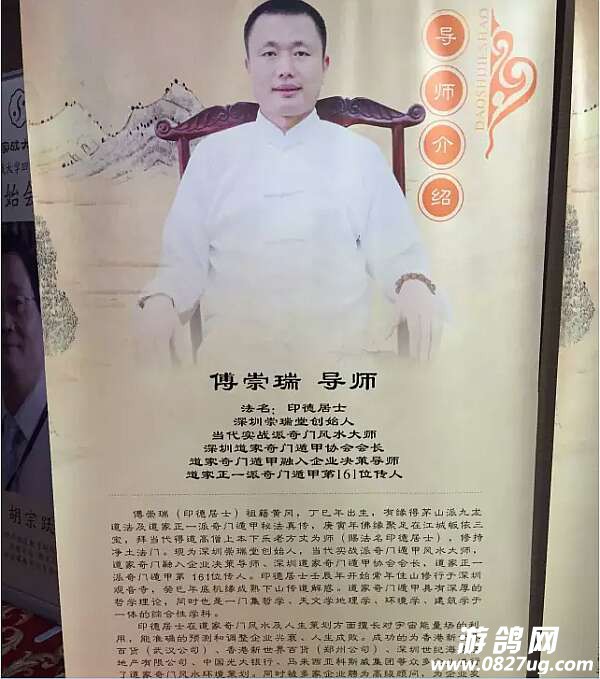 导师介绍
DAOSHIJIESHAO
傅崇瑞 导师
法名：印德居士
深圳崇瑞堂创始人
当代实战派奇门风水大师
深圳道家奇门遁甲协会会长
道家奇门遁甲融入企业决策导师
道家正一派奇门遁甲第161位传人
傅崇瑞（印德居士）祖籍黄冈，丁巳年出生，有缘得茅山派九龙
道法及道家正一派奇门遁甲秘法真传，庚寅年佛缘聚足在江城皈依三
宝，拜当代得道高僧上本下乐老方丈为师（赐法名印德居士），修持
净土法门。现为深圳崇瑞堂创始人，当代实战派奇门遁甲风水大师，
道家奇门融入企业决策导师、深圳道家奇门遁甲协会会长，道家正一
派奇门遁甲第 161位传人。印德居士壬辰年开始常年住山修行于深圳
观音寺，癸巳年底机缘成熟下山传道解惑。道家奇门遁甲具有深厚的
哲学理论，同时也是一门集哲学、天文学地理学、环境学、建筑学于
一体的综合性学科。
印德居士在道家奇门风水及人生策划方面擅长对宇宙能量场的利
用，能准确的预测和调整企业兴衰、人生成败。成功的为香港新
百货（武汉公司）、香港新世界百货（郑州公司）、深圳世纪海
地产有限公司、中国光大银行、马来西亚科斯威集团等众多
了道家奇门风水环境策划。同时被多家企业聘为高级顾问，为企业发
胡宗跃
游鸽网
www.0827ug.com